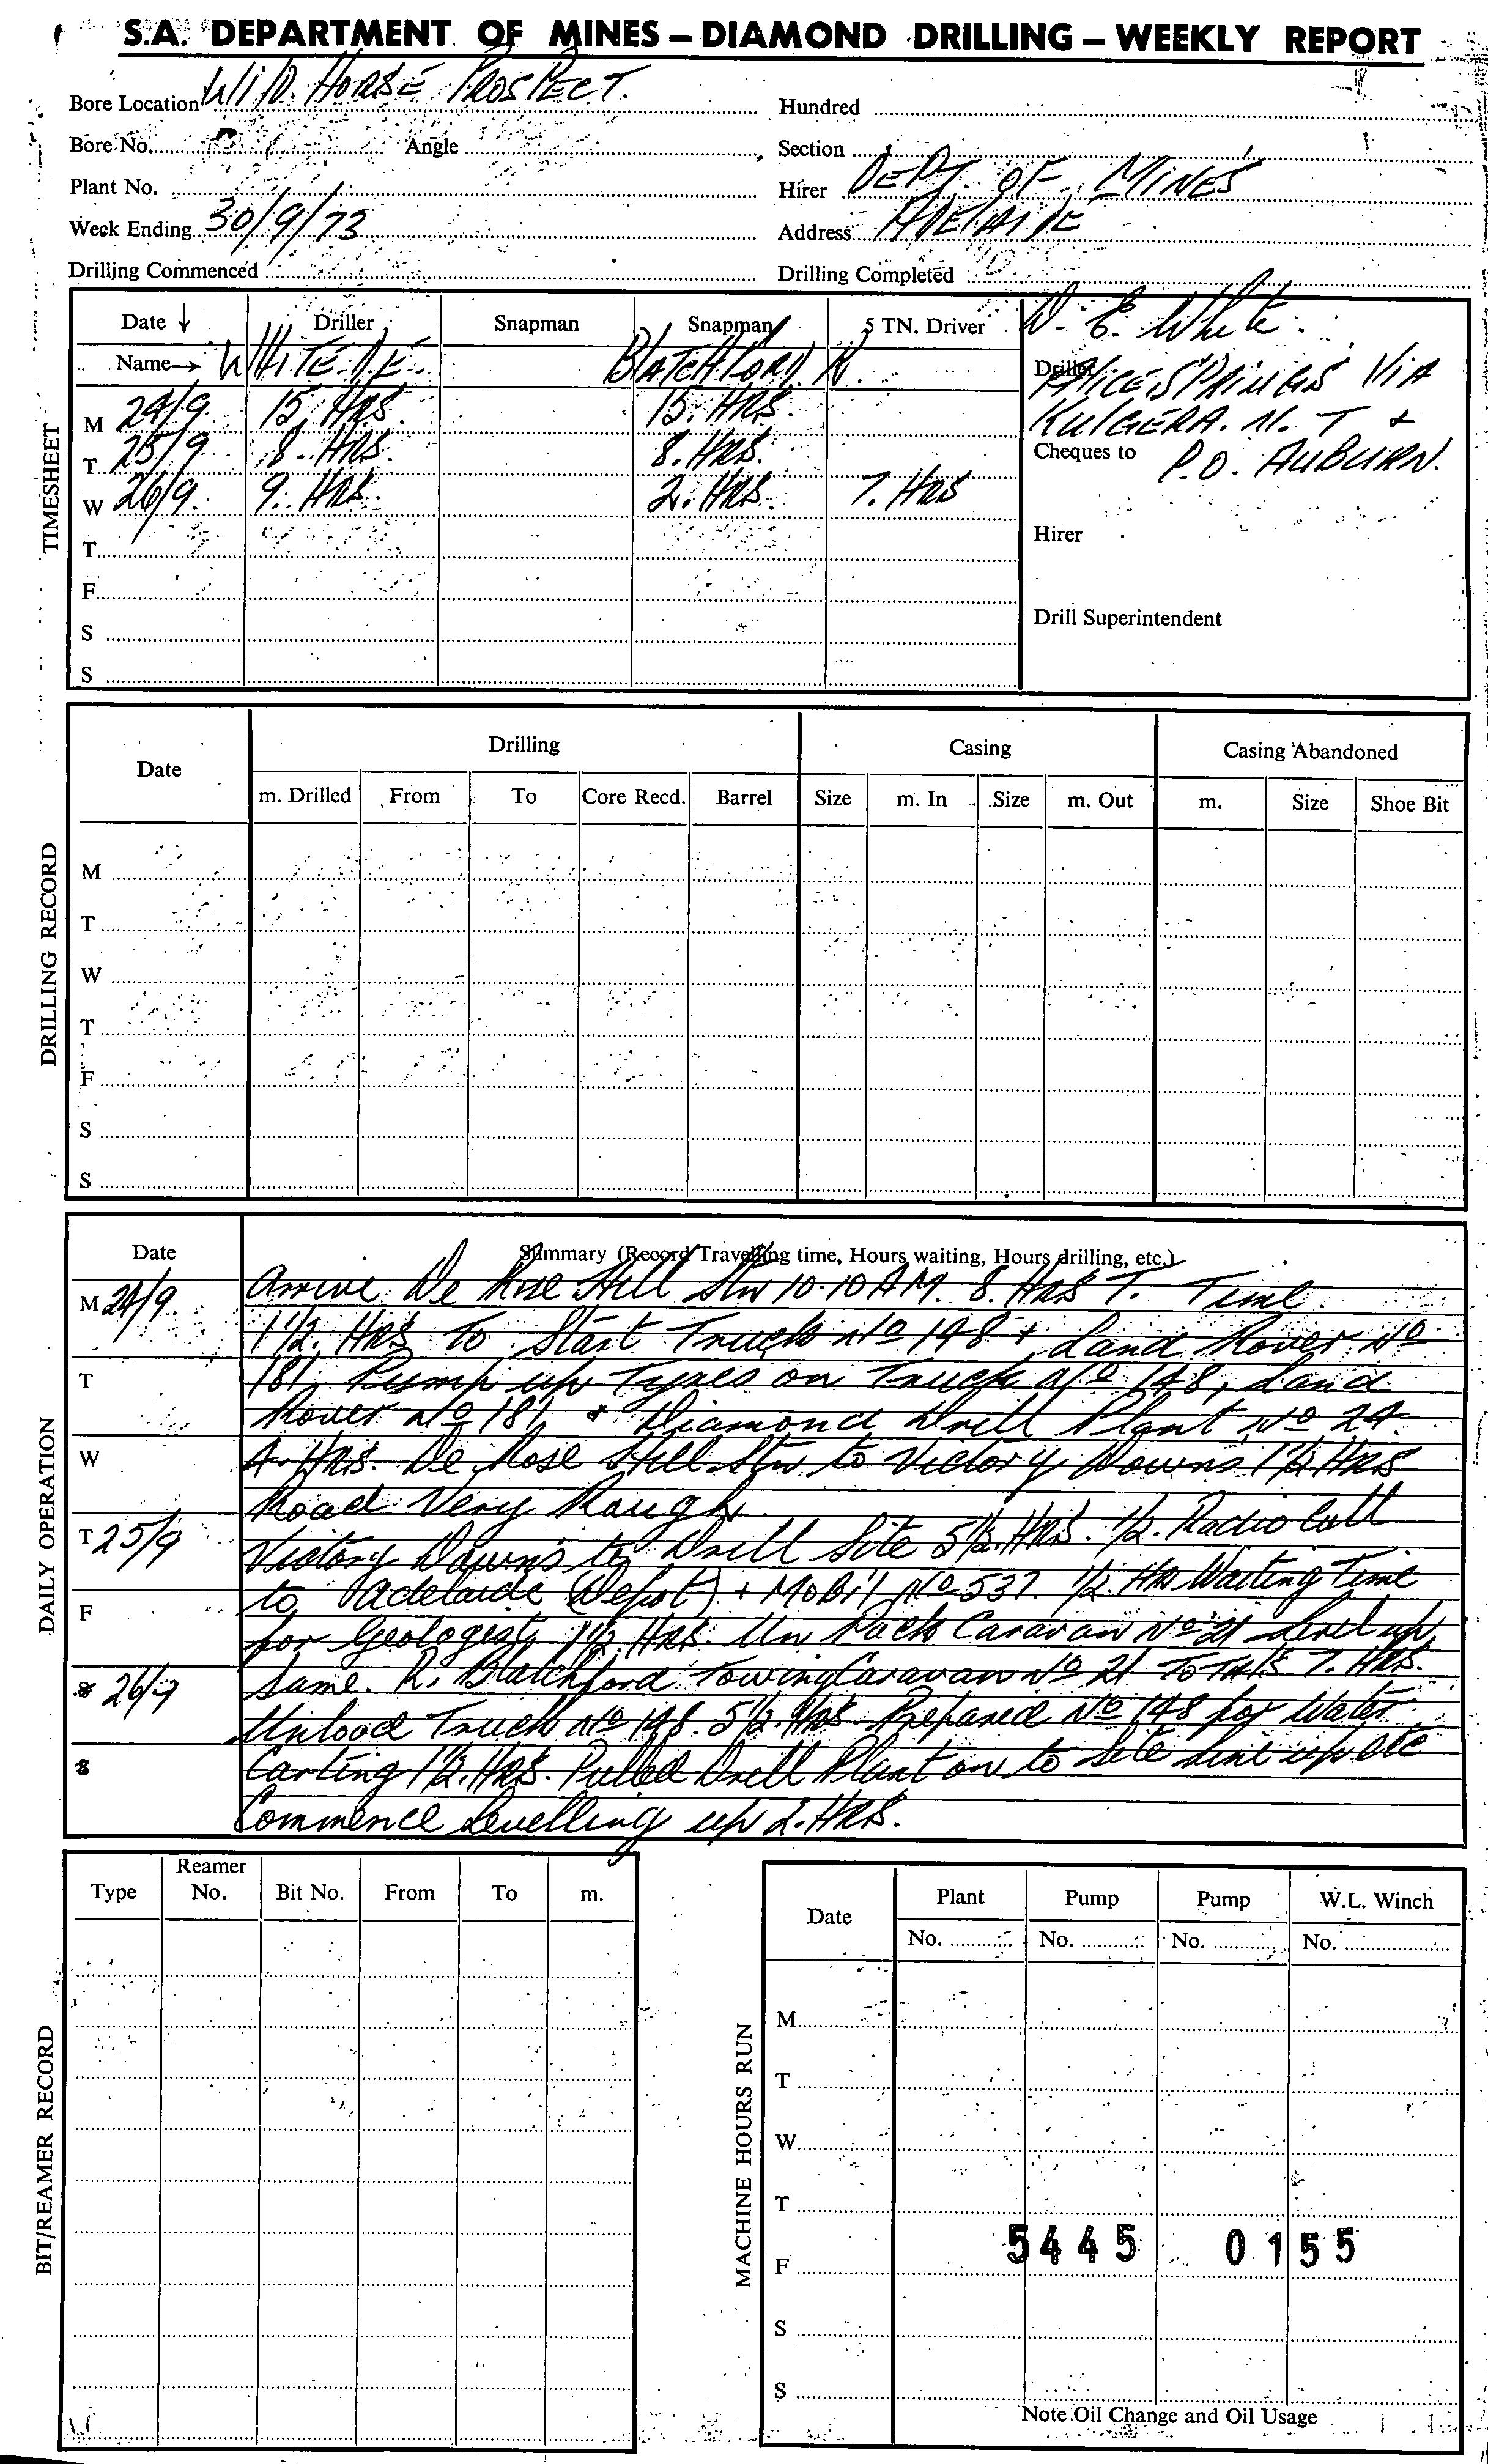 S.A. DEPARTMENT OF MINES – DIAMOND DRILLING – WEEKLY REPORT
Bore Location WILD HORSE PROSPECT.
Hundred
Bore No. Angle
Section
Plant No.
Hirer DEPT. OF MINES
Week Ending 30/9/73
Address ADELAIDE
Drilling Commenced
Drilling Completed
TIMESHEET
Date ↓ Driller Snapman Snapman 5 TN. Driver
Name→ WHITE. D.E. BLATCHFORD K.
M 24/9 15. HRS 15. HRS.
T 25/9 8. HRS. 8. HRS.
W 26/9. 9. HRS. 2. HRS. 7. HRS
T
F
S
S
D. E. White.
Driller
ALICE SPRINGS VIA
KULGERA. N. T +
Cheques to P.O. AUBURN.
Hirer
Drill Superintendent
DRILLING RECORD
Date Drilling Casing Casing Abandoned
m. Drilled From To Core Recd. Barrel Size m. In Size m. Out m. Size Shoe Bit
M
T
W
T
F
S
S
DAILY OPERATION
Date Summary (Record Travelling time, Hours waiting, Hours drilling, etc.)
M 24/9 Arrive De Rose Hill Stn 10.10 AM. 8. HRS T. Time.
1 1/2. HRS To Start Truck No 148 + Land Rover No
T 181 Pump up Tyres on Truck No 148, Land
Rover No 181 + Diamond Drill Plant No 24.
W 4. HRS. De Rose Hill Stn to Victory Downs 1 1/2 HRS
Road Very Rough.
T 25/9 Victory Downs to Drill Site 5 1/2. HRS. 1/2. Radio Call
to Adelaide (Depot) + Mobil No 537. 1/2. HR Waiting Time
F for Geologest, 1 1/2. HRS. Un Pack Caravan No 21 Level up
Same. K. Blatchford Towing Caravan No 21 Totals 7. HRS.
S 26/9 Unload Truck No 148. 5 1/2. HRS. Prepared No 148 for Water
S Carting 1 1/2. HRS. Pulled Drill Plant on to Site Line up Etc
Commence Levelling up 2. HRS.
BIT/REAMER RECORD
Type Reamer No. Bit No. From To m.
MACHINE HOURS RUN
Date Plant Pump Pump W.L. Winch
No. No. No. No.
M
T
W
T
5445 0155
F
S
S
Note Oil Change and Oil Usage